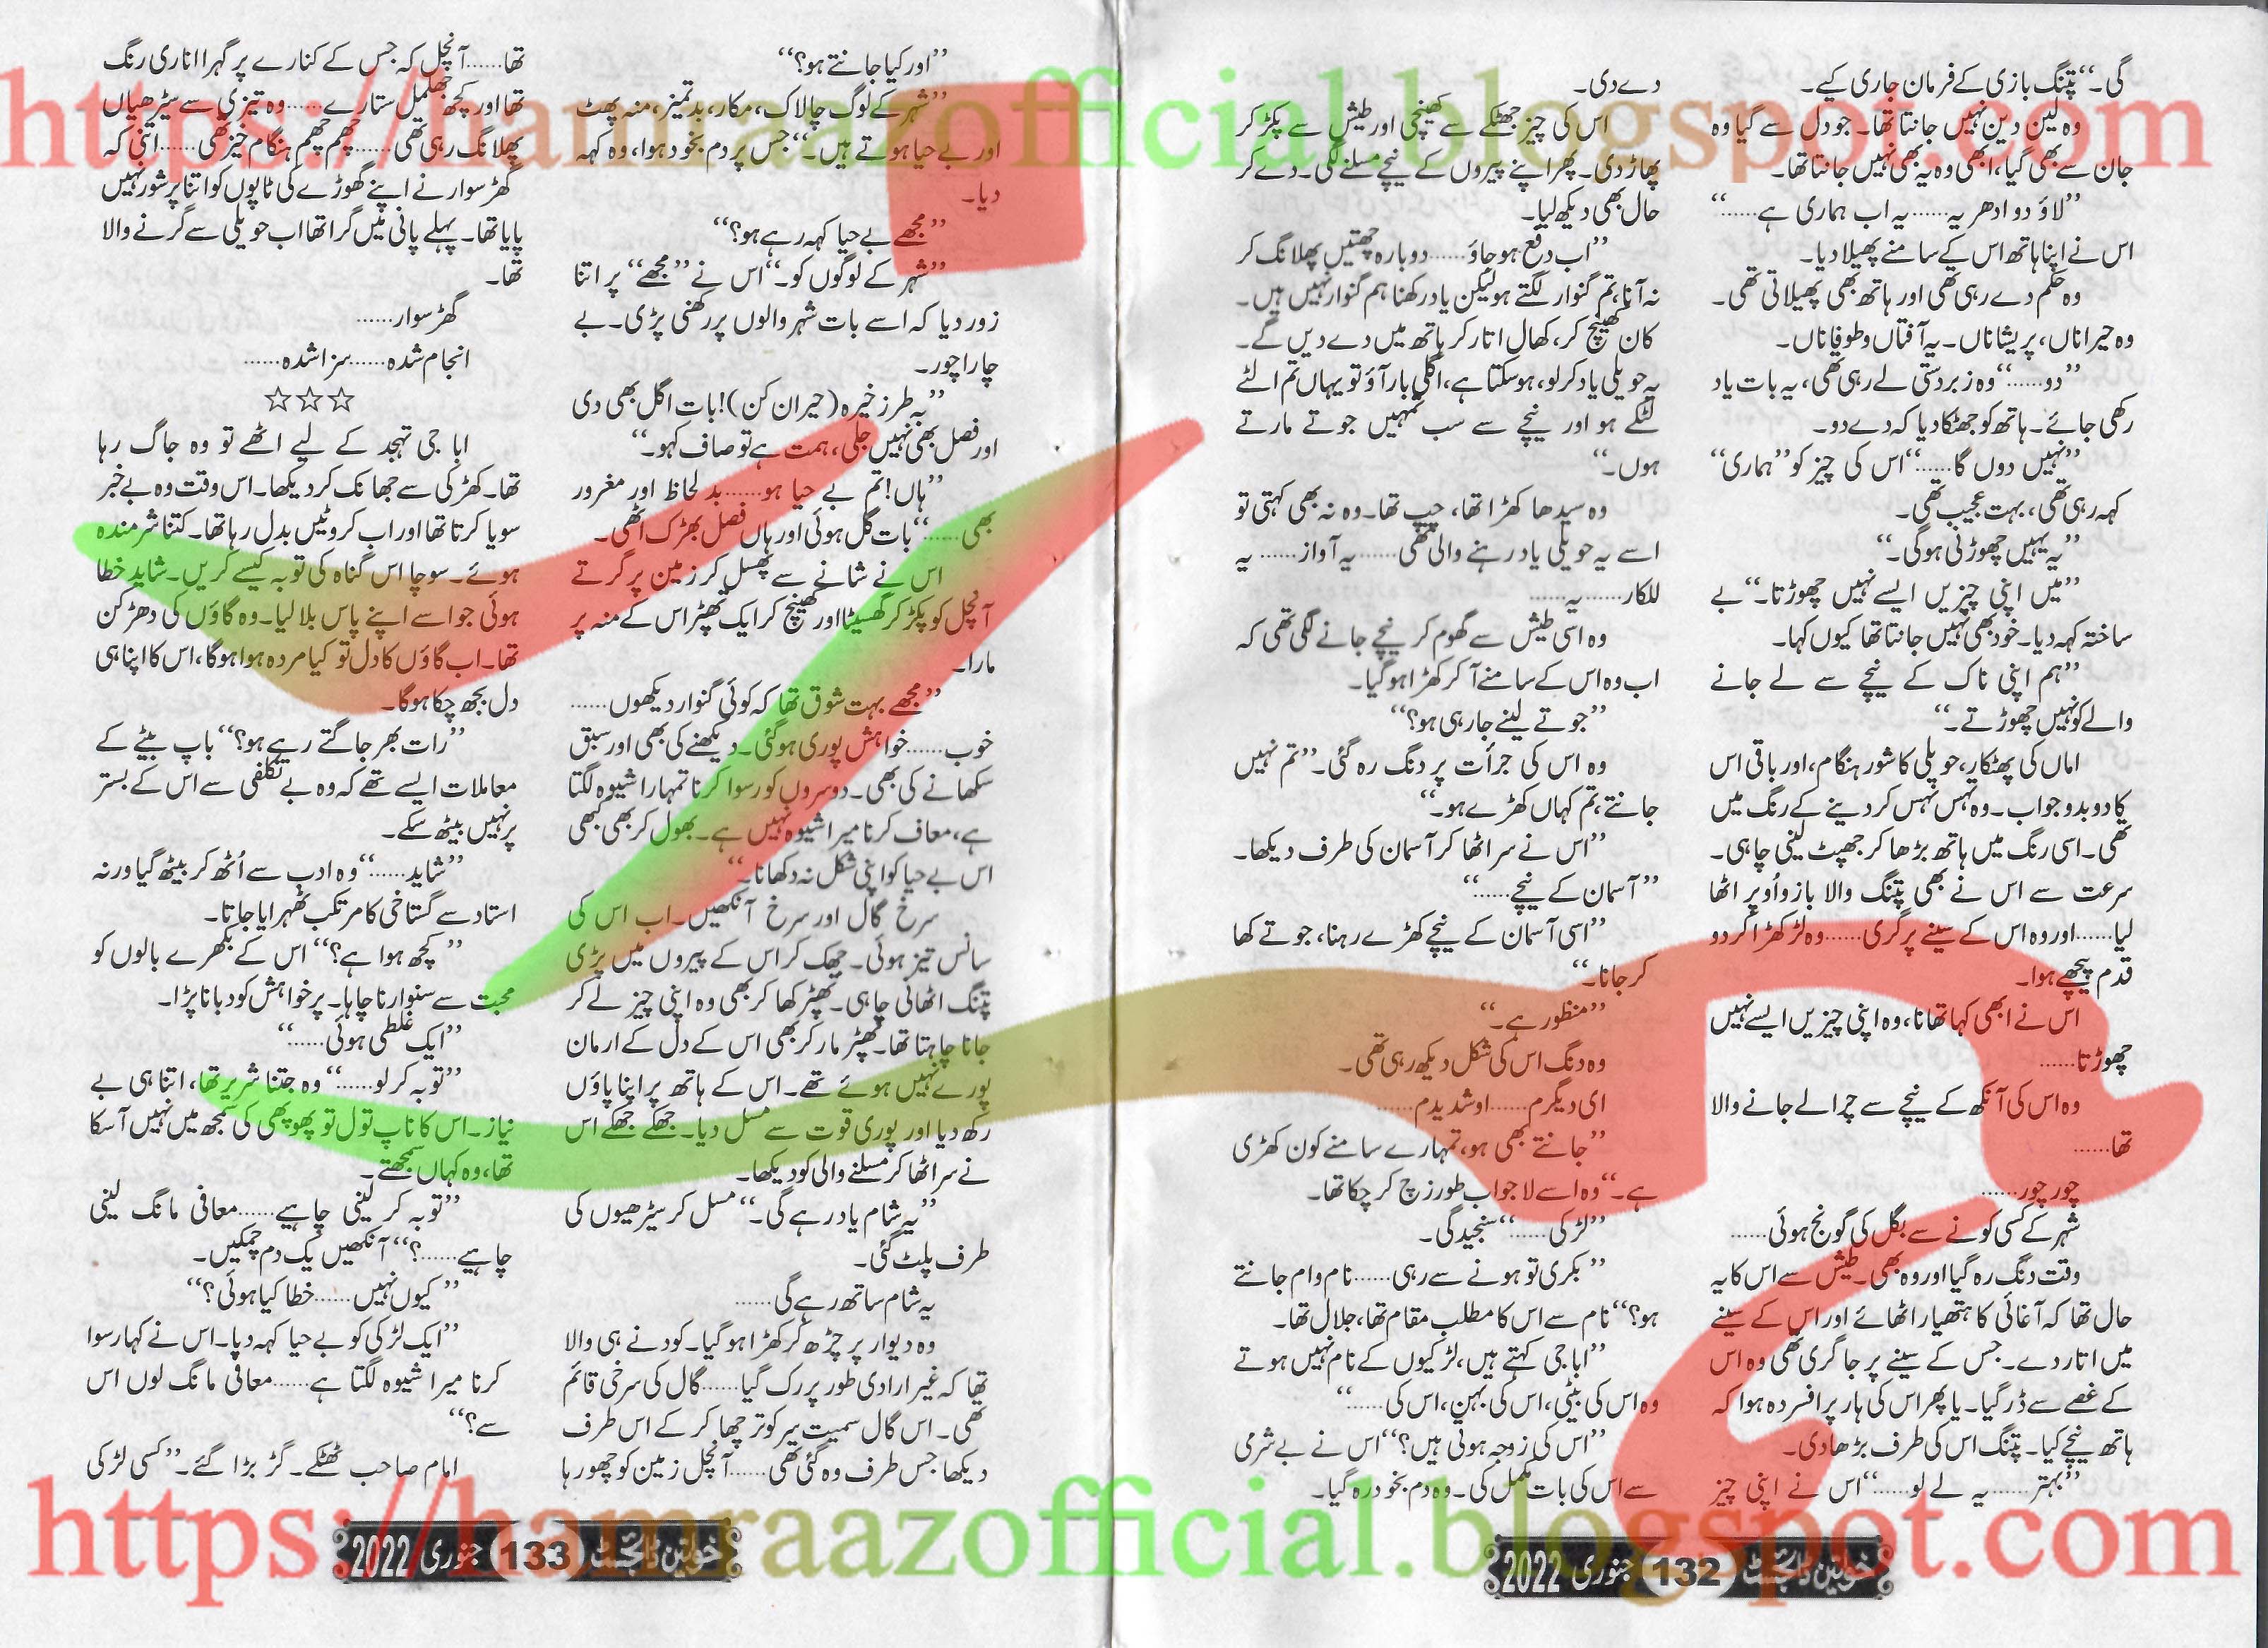 گی۔‘‘ پتنگ بازی کے فرمان جاری کیے۔
وہ لین دین نہیں جانتا تھا۔ جو دل سے گیا وہ
جان سے بھی گیا، ابھی وہ یہ بھی نہیں جانتا تھا۔
’’لاؤ دو ادھر یہ...... یہ اب ہماری ہے......‘‘
اس نے اپنا ہاتھ اس کے سامنے پھیلا دیا۔
وہ حکم دے رہی تھی اور ہاتھ بھی پھیلاتی تھی۔
وہ حیراناں، پریشاناں۔ یہ آفتاں و طوفاناں۔
’’دو......‘‘ وہ زبردستی لے رہی تھی، یہ بات یاد
رکھی جائے۔ ہاتھ کو جھٹکا دیا کہ دے دو۔
’’نہیں دوں گا......‘‘ اس کی چیز کو ’’ہماری‘‘
کہہ رہی تھی، بہت عجیب تھی۔
’’یہ یہیں چھوڑنی ہوگی۔‘‘
’’میں اپنی چیزیں ایسے نہیں چھوڑتا۔‘‘ بے
ساختہ کہہ دیا۔ خود بھی نہیں جانتا تھا کیوں کہا۔
’’ہم اپنی ناک کے نیچے سے لے جانے
والے کو نہیں چھوڑتے۔‘‘
اماں کی پھٹکار، حویلی کا شور ہنگام، اور باقی اس
کا دو بدو جواب۔ وہ تہس نہس کر دینے کے رنگ میں
تھی۔ اسی رنگ میں ہاتھ بڑھا کر جھپٹ لینی چاہی۔
سرعت سے اس نے بھی پتنگ والا بازو اُوپر اٹھا
لیا...... اور وہ اس کے سینے پر گری...... وہ لڑکھڑا کر دو
قدم پیچھے ہوا۔
اس نے ابھی کہا تھا نا، وہ اپنی چیزیں ایسے نہیں
چھوڑتا......
وہ اس کی آنکھ کے نیچے سے چرا لے جانے والا
تھا......
چور چور......
شہر کے کسی کونے سے بگل کی گونج ہوئی......
وقت دنگ رہ گیا اور وہ بھی۔ طیش سے اس کا یہ
حال تھا کہ آغائی کا ہتھیار اٹھائے اور اس کے سینے
میں اتار دے۔ جس کے سینے پر جا گری تھی وہ اس
کے غصے سے ڈر گیا۔ یا پھر اس کی ہار پر افسردہ ہوا کہ
ہاتھ نیچے کیا۔ پتنگ اس کی طرف بڑھا دی۔
’’بہتر...... یہ لے لو......‘‘ اس نے اپنی چیز
دے دی۔
اس کی چیز جھٹکے سے کھینچی اور طیش سے پکڑ کر
پھاڑ دی۔ پھر اپنے پیروں کے نیچے مسلنے لگی۔ دے کر
حال بھی دیکھ لیا۔
’’اب دفع ہو جاؤ...... دوبارہ چھتیں پھلانگ کر
نہ آنا، تم گنوار لگتے ہو لیکن یاد رکھنا ہم گنوار نہیں ہیں۔
کان کھینچ کر، کھال اتار کر ہاتھ میں دے دیں گے۔
یہ حویلی یاد کر لو، ہو سکتا ہے، اگلی بار آؤ تو یہاں تم الٹے
لٹکے ہو اور نیچے سے سب تمہیں جوتے مارتے
ہوں۔‘‘
وہ سیدھا کھڑا تھا، چپ تھا۔ وہ نہ بھی کہتی تو
اسے یہ حویلی یاد رہنے والی تھی...... یہ آواز...... یہ
للکار...... یہ......
وہ اسی طیش سے گھوم کر نیچے جانے لگی تھی کہ
اب وہ اس کے سامنے آ کر کھڑا ہو گیا۔
’’جوتے لینے جا رہی ہو؟‘‘
وہ اس کی جرأت پر دنگ رہ گئی۔ ’’تم نہیں
جانتے، تم کہاں کھڑے ہو۔‘‘
’’اس نے سر اٹھا کر آسمان کی طرف دیکھا۔
’’آسمان کے نیچے......‘‘
’’اسی آسمان کے نیچے کھڑے رہنا، جوتے کھا
کر جانا۔‘‘
’’منظور ہے۔‘‘
وہ دنگ اس کی شکل دیکھ رہی تھی۔
ای دیگرم...... او شدیدم......
’’جانتے بھی ہو، تمہارے سامنے کون کھڑی
ہے۔‘‘ وہ اسے لاجواب طور زچ کر چکا تھا۔
’’لڑکی......‘‘ سنجیدگی۔
’’بکری تو ہونے سے رہی...... نام وام جانتے
ہو؟‘‘ نام سے اس کا مطلب مقام تھا، جلال تھا۔
’’ابا جی کہتے ہیں، لڑکیوں کے نام نہیں ہوتے
وہ اس کی بیٹی، اس کی بہن، اس کی......‘‘
’’اس کی زوجہ ہوتی ہیں؟‘‘ اس نے بے شرمی
سے اس کی بات مکمل کی۔ وہ دم بخود رہ گیا۔
خواتین ڈائجسٹ 132 جنوری 2022
’’اور کیا جانتے ہو؟‘‘
’’شہر کے لوگ چالاک، مکار، بدتمیز، منہ پھٹ
اور بے حیا ہوتے ہیں۔‘‘ جس پر دم بخود ہوا، وہ کہہ
دیا۔
’’مجھے بے حیا کہہ رہے ہو؟‘‘
’’شہر کے لوگوں کو۔‘‘ اس نے ’’مجھے‘‘ پر اتنا
زور دیا کہ اسے بات شہر والوں پر رکھنی پڑی۔ بے
چارا چور۔
’’بہ طرز خیرہ (حیران کن)! بات اگل بھی دی
اور فصل بھی نہیں جلی، ہمت ہے تو صاف کہو۔‘‘
’’ہاں! تم بے حیا ہو...... بد لحاظ اور مغرور
بھی......‘‘ بات گل ہوئی اور ہاں فصل بھڑک اٹھی۔
اس نے شانے سے پھسل کر زمین پر گرتے
آنچل کو پکڑ کر گھسیٹا اور کھینچ کر ایک تھپڑ اس کے منہ پر
مارا۔
’’مجھے بہت شوق تھا کہ کوئی گنوار دیکھوں......
خوب...... خواہش پوری ہو گئی۔ دیکھنے کی بھی اور سبق
سکھانے کی بھی۔ دوسروں کو رسوا کرنا تمہارا شیوہ لگتا
ہے، معاف کرنا میرا شیوہ نہیں ہے۔ بھول کر بھی کبھی
اس بے حیا کو اپنی شکل نہ دکھانا۔‘‘
سرخ گال اور سرخ آنکھیں۔ اب اس کی
سانس تیز ہوئی۔ جھک کر اس کے پیروں میں پڑی
پتنگ اٹھانی چاہی۔ تھپڑ کھا کر بھی وہ اپنی چیز لے کر
جانا چاہتا تھا۔ تھپڑ مار کر بھی اس کے دل کے ارمان
پورے نہیں ہوئے تھے۔ اس کے ہاتھ پر اپنا پاؤں
رکھ دیا اور پوری قوت سے مسل دیا۔ جھکے جھکے اس
نے سر اٹھا کر مسلنے والی کو دیکھا۔
’’یہ شام یاد رہے گی۔‘‘ مسل کر سیڑھیوں کی
طرف پلٹ گئی۔
یہ شام ساتھ رہے گی......
وہ دیوار پر چڑھ کر کھڑا ہو گیا۔ کودنے ہی والا
تھا کہ غیر ارادی طور پر رک گیا...... گال کی سرخی قائم
تھی۔ اس گال سمیت سر کو ترچھا کر کے اس طرف
دیکھا جس طرف وہ گئی تھی...... آنچل زمین کو چھو رہا
تھا...... آنچل کہ جس کے کنارے پر گہرا اناری رنگ
تھا اور کچھ جھلمل ستارے...... وہ تیزی سے سیڑھیاں
پھلانگ رہی تھی...... چھم چھم ہنگام خیز تھی...... اتنی کہ
گھڑ سوار نے اپنے گھوڑے کی ٹاپوں کو اتنا پر شور نہیں
پایا تھا۔ پہلے پانی میں گرا تھا اب حویلی سے گرنے والا
تھا۔
گھڑ سوار......
انجام شدہ...... سزا شدہ......
☆☆☆
ابا جی تہجد کے لیے اٹھے تو وہ جاگ رہا
تھا۔ کھڑکی سے جھانک کر دیکھا۔ اس وقت وہ بے خبر
سویا کرتا تھا اور اب کروٹیں بدل رہا تھا۔ کتنا شرمندہ
ہوئے۔ سوچا اس گناہ کی توبہ کیسے کریں۔ شاید خطا
ہوئی جو اسے اپنے پاس بلا لیا۔ وہ گاؤں کی دھڑکن
تھا۔ اب گاؤں کا دل تو کیا مردہ ہوا ہوگا، اس کا اپنا ہی
دل بجھ چکا ہوگا۔
’’رات بھر جاگتے رہے ہو؟‘‘ باپ بیٹے کے
معاملات ایسے تھے کہ وہ بے تکلفی سے اس کے بستر
پر نہیں بیٹھ سکے۔
’’شاید......‘‘ وہ ادب سے اُٹھ کر بیٹھ گیا ورنہ
استاد سے گستاخی کا مرتکب ٹھہرایا جاتا۔
’’کچھ ہوا ہے؟‘‘ اس کے بکھرے بالوں کو
محبت سے سنوارنا چاہا۔ پر خواہش کو دبانا پڑا۔
’’ایک غلطی ہوئی......‘‘
’’توبہ کر لو......‘‘ وہ جتنا شریر تھا، اتنا ہی بے
نیاز۔ اس کا ناپ تول تو پھوپھی کی سمجھ میں نہیں آ سکا
تھا، وہ کہاں سمجھتے۔
’’توبہ کر لینی چاہیے...... معافی مانگ لینی
چاہیے......؟‘‘ آنکھیں یک دم چمکیں۔
’’کیوں نہیں...... خطا کیا ہوئی؟‘‘
’’ایک لڑکی کو بے حیا کہہ دیا۔ اس نے کہا رسوا
کرنا میرا شیوہ لگتا ہے...... معافی مانگ لوں اس
سے؟‘‘
امام صاحب ٹھٹکے۔ گڑبڑا گئے۔ ’’کسی لڑکی
خواتین ڈائجسٹ 133 جنوری 2022
https://hamraazofficial.blogspot.com
https://hamraazofficial.blogspot.com